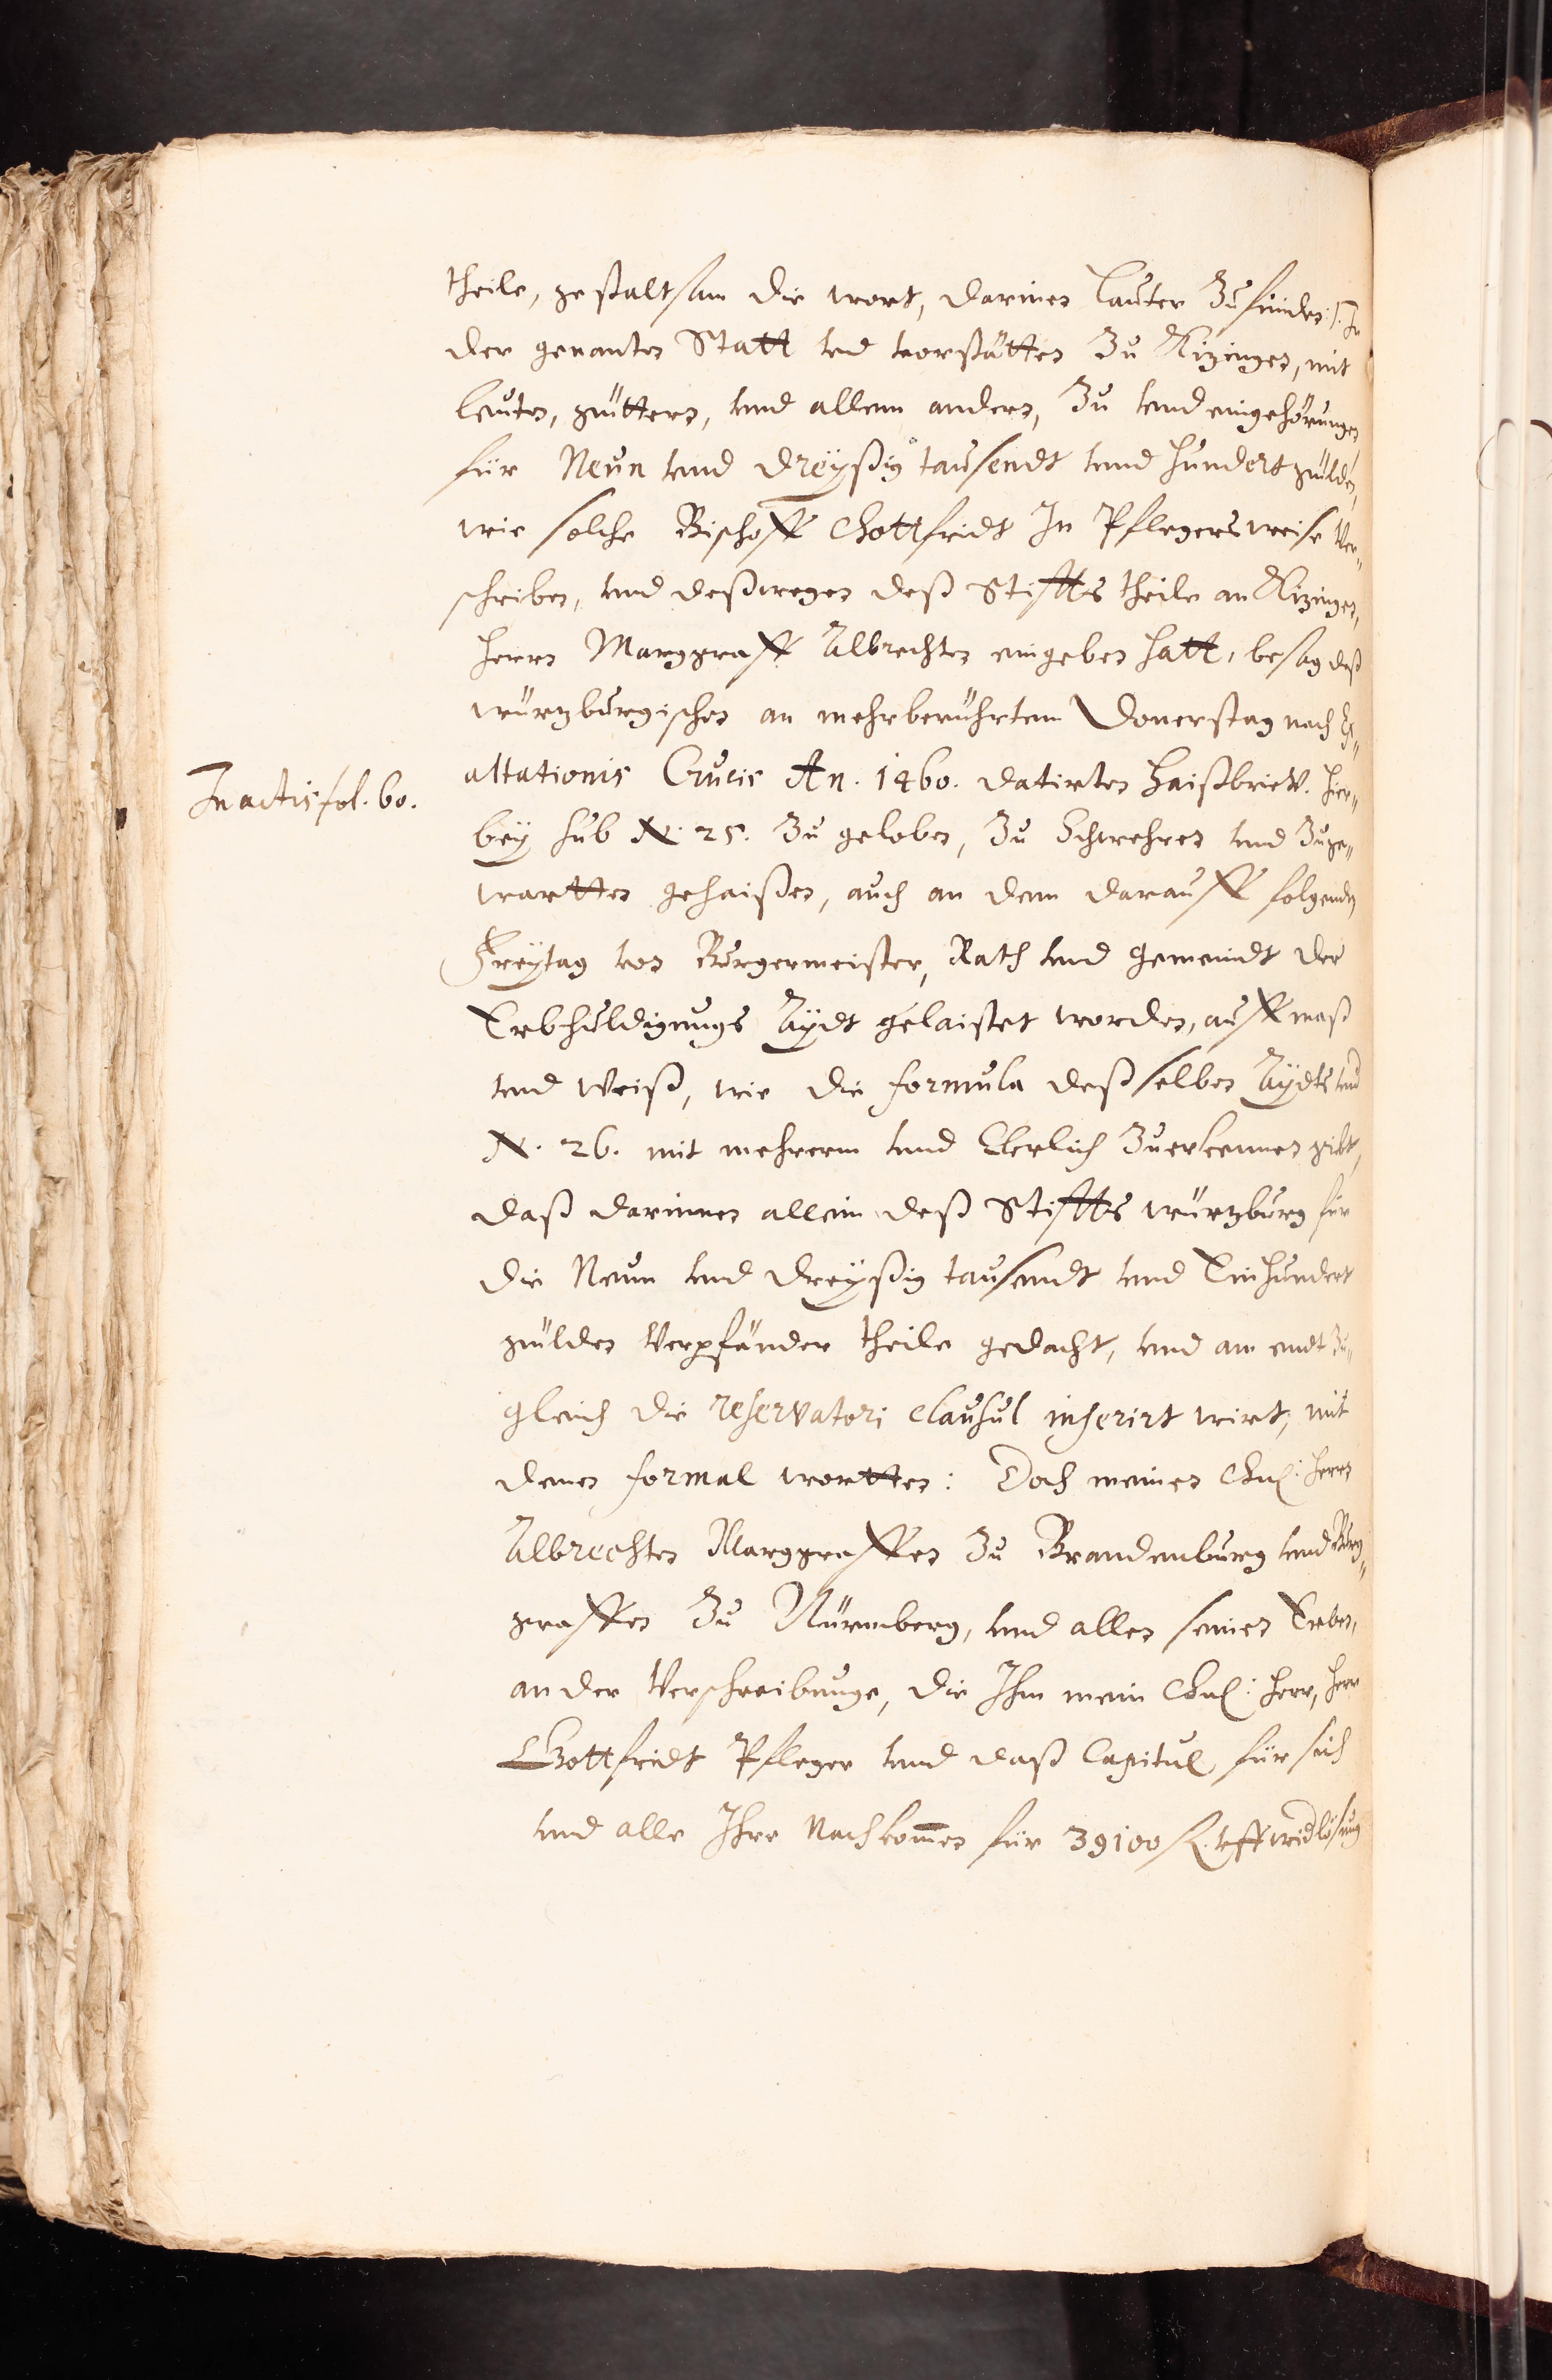 theile, gestaltsam die wort, darinen lauter Zufinden: /: In
der genanten Statt vnd vorstätten Zu Kizingen, mit
leuten, güttern, vnd allem andern, Zu vnd eingehörungen
für Neun vnd dreÿßig tausendt vnd hundert gulden,
wie solche Bischoff Gottfridt In Pflegersweise Ver„
schriben, vnd deßwegen deß Stiffts theile an Kizingen,
herrn Marggraff Albrechten eingeben hatt, besag deß
würzburgischen an mehrberührtem Donerstag nach Ex„
altationis Crucis An. 1460. datirten Haißbrieff. hier„
In actis fol. 60.
beÿ sub N. 25. Zu geloben, Zu Schwehren vnd Zuge„
wartten gehaißen, auch an dem darauff folgenden
Freÿtag von Burgermeister, Rath vnd gemeindt der
Erbhuldigungs Aÿdt gelaistet worden, auff maß
vnd weiß, wie die formula deßselben Aÿdts vnd
N. 26. mit mehrerm vnd Clerlich Zuerkennen gibt,
daß darinnen allein deß Stiffts würzburg für
die Neun vnd dreÿßig tausendt vnd Einhundert
gulden Verpfänder theile gedacht, vnd am endt Zu„
gleich die reservatori clausul inserirt wirt, mit
denen formal wortten: Doch meinen Gn: herrn
Albrechten Marggraffen Zu Brandenburg vnd Burg„
graffen Zu Nürmberg, vnd allen seinen Erben,
an der Verschreibunge, die Ihm mein Gn: herr, herr
Gottfridt Pfleger vnd daß Capitul für sich
vnd alle Ihre Nachkom̄en für 39100 fl. vff widlösung